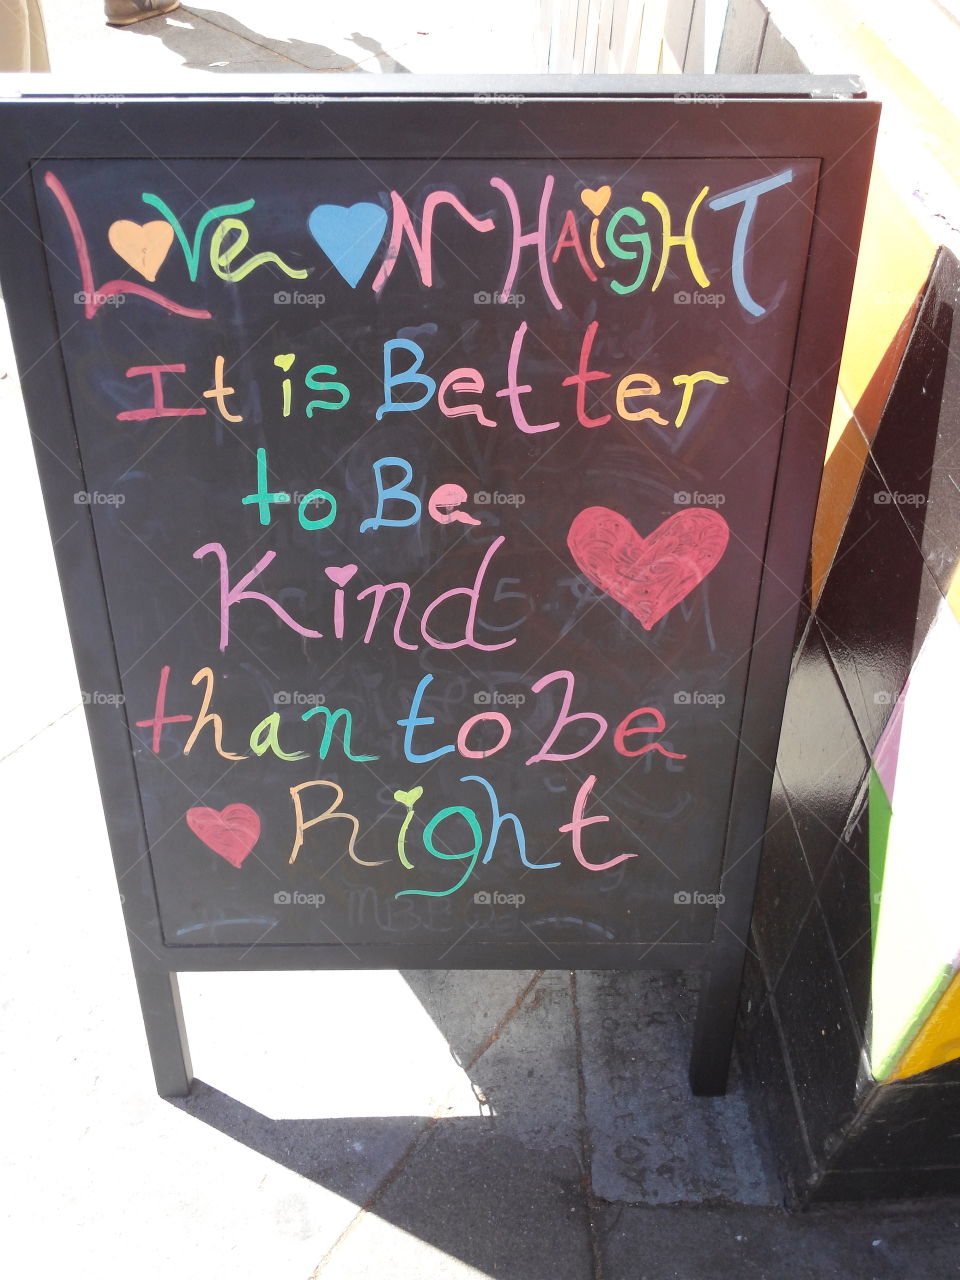 Love ON HAiGHT
It is Better
to Be
Kind
than to be
Right